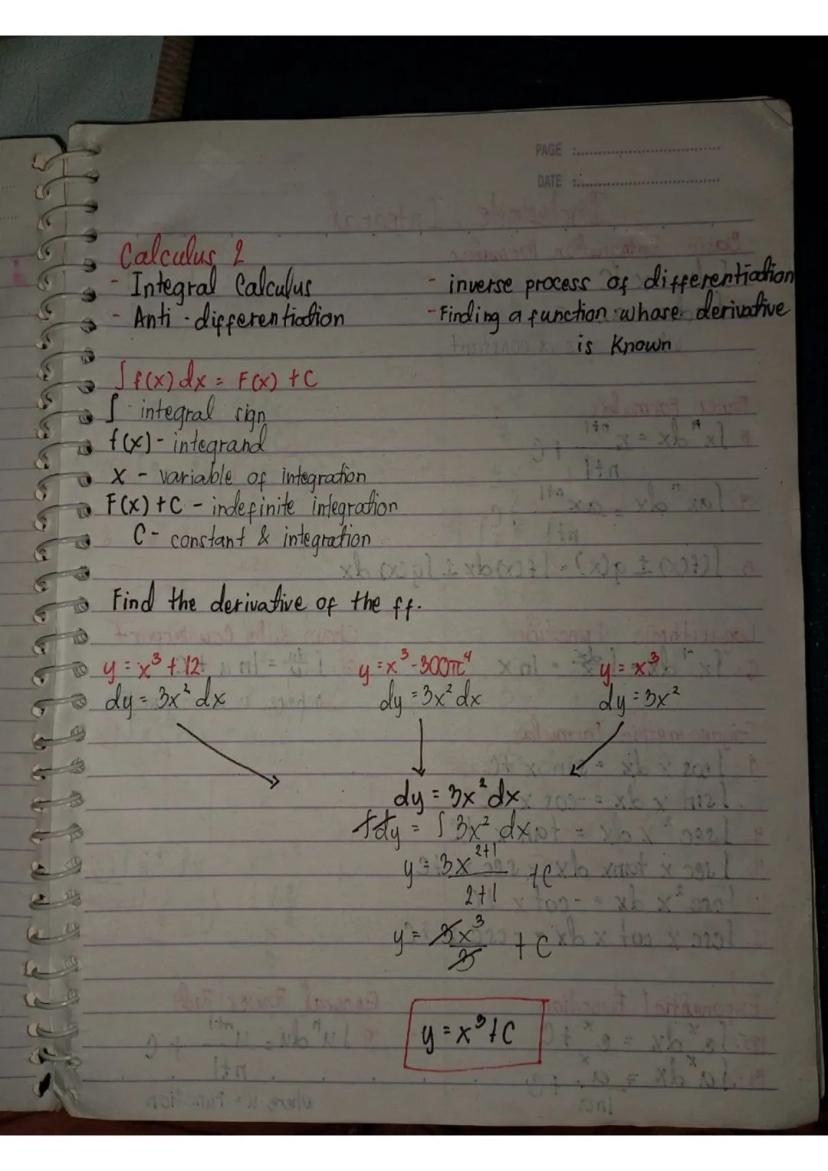 PAGE :
DATE :
Calculus 2
- Integral Calculus
- inverse process of differentiation
- Anti-differentiation
- Finding a function whose derivative
is known
∫f(x)dx = F(x) + C
∫ integral sign
f(x) - integrand
x - variable of integration
F(x) + C - indefinite integration
C - constant & integration
Find the derivative of the ff.
y = x³ + 12
y = x³ - 300π⁴
y = x³
dy = 3x² dx
dy = 3x² dx
dy = 3x²
dy = 3x² dx
∫dy = ∫ 3x² dx
y = 3x²⁺¹ / 2+1 + C
y = 3x³ / 3 + C
y = x³ + C